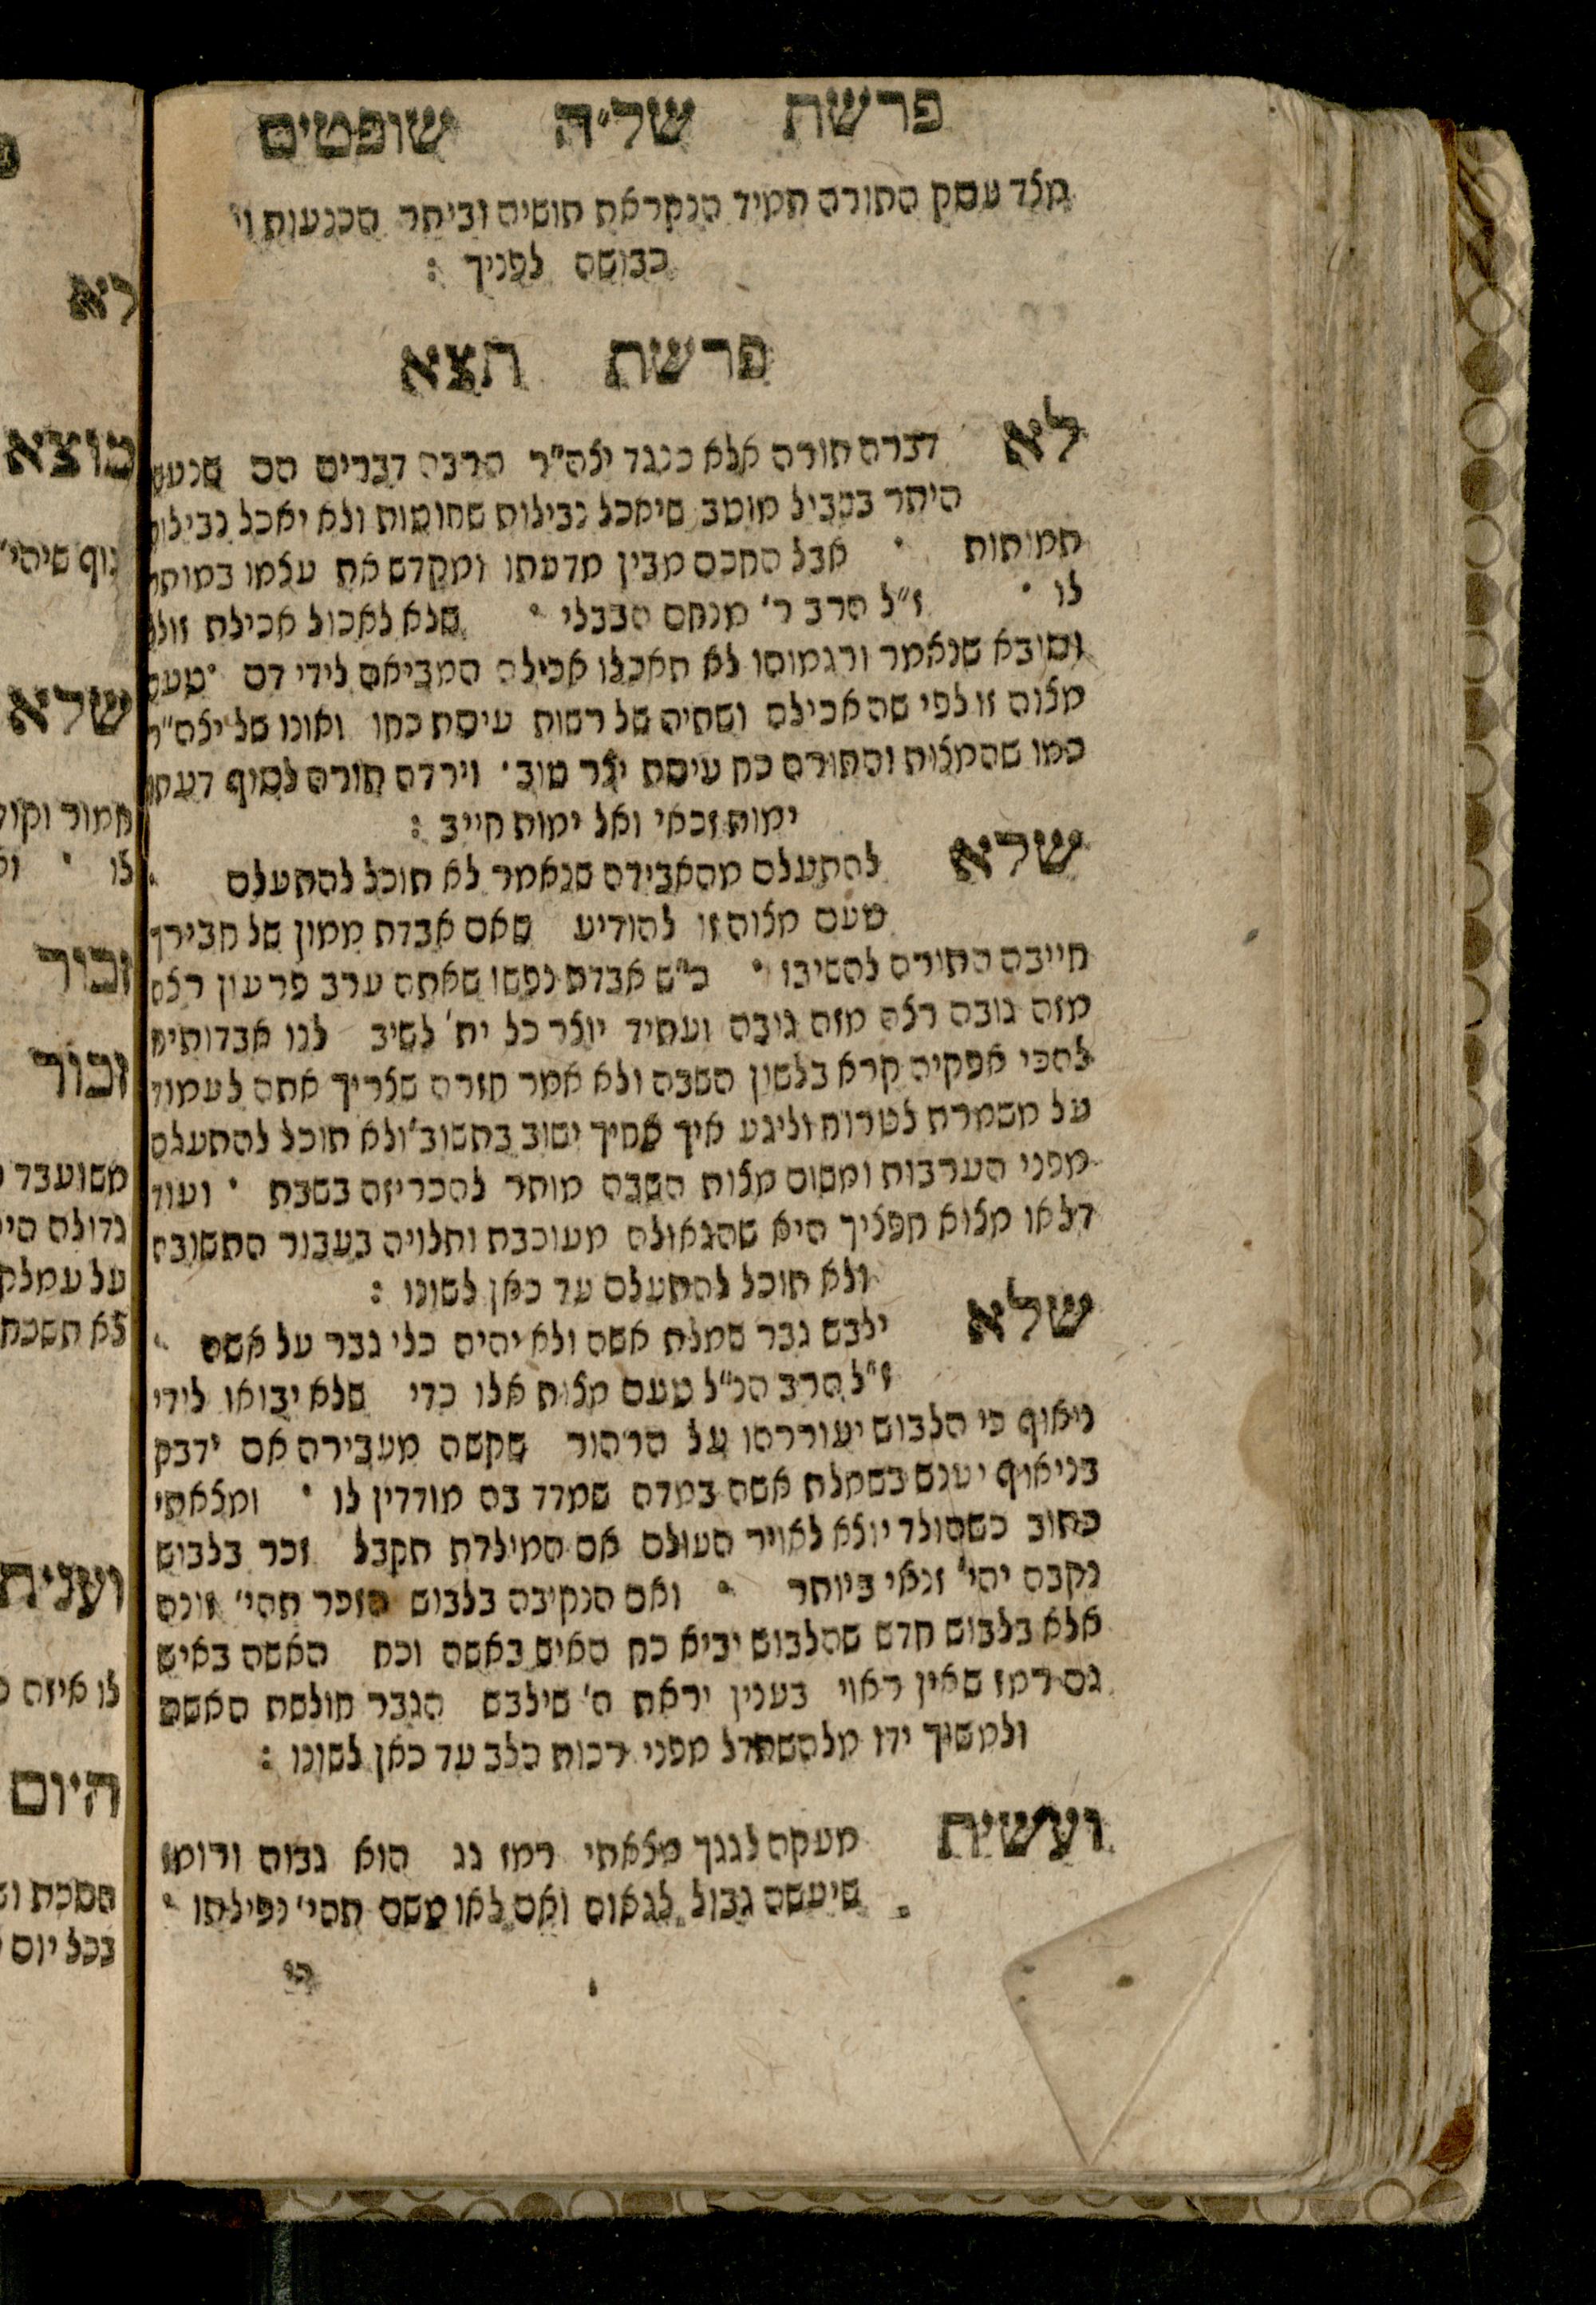 פרשת של״ה שופטים
מצד עסק התורה תמיד הנקראת תושיה וביתר הכנעות
כבושה לפניך :
פרשת תצא
לא דברה תורה אלא כנגד יצה״ר הרבה דברים הם
היתר בשביל מוטב שיאכל נבילות שחוטות ולא יאכל
תמותות ׳ אבל החכם מבין מדעתו ומקדש את עצמו במותר
לו ׳ ז״ל הרב ר׳ מנחם הבבלי ׳ שלא לאכול אכילת זולל
וסובא שנאמר ורגמוהו לא תאכלו אכילה המביאה לידי דם ׳טעם
מצוה זו לפי שהאכילה ושתיה של רשות עיסת כחו ואונו של יצה״ר
כמו שהמצות והתורה כח עיסת יצר טוב׳ וירדה תורה לסוף דעתו
ימות זכאי ואל ימות חייב :
שלא להתעלם מהאבידה שנאמר לא תוכל להתעלם
טעם מצוה זו להודיע שאם אבדת ממון של חבירך
חייבה התורה להשיבו ׳ כ״ש אבדת נפשו שאתה ערב
מזה גובה רצה מזה גובה ועתיד יוצר כל ית׳ לשיב לנו
להכי אפקיה קרא בלשון השבה ולא אמר חזרה שצריך אתה לעמוד
על משמרת לטרוח וליגע איך אחיך ישוב בתשוב׳ ולא תוכל להתעלם
מפני הערבות ומשום מצות השבה מותר להכריזה בשבת ׳ ועוד
דלאו מצוא חפציך היא שהגאולה מעוכבת ותלויה בעבור התשובה
ולא תוכל להתעלם עד כאן לשונו :
שלא ילבש גבר שמלת אשה ולא יהיה כלי גבר על אשה
ז״ל הרב הנ״ל טעם מצות אלו כדי שלא יבואו לידי
ניאוף כי הלבוש יעוררהו על הרהור שקשה מעבירה אם ידבק
בניאוף יענש בשמלת אשה במדה שמדד בה מודדין לו ׳ ומצאתי
כתוב כשהולד יוצא לאויר העולם אם המילדת תקבל זכר בלבוש
נקבה יהי׳ זנאי ביותר ׳ ואם הנקיבה בלבוש הזכר תהי׳ זונה
אלא בלבוש חדש שהלבוש יביא כח האיש באשה וכח האשה באיש
גם רמז שאין ראוי בענין יראת ה׳ שילבש הגבר חולשת האשה
ולמשוך ידו מלהשתדל מפני רכות כלב עד כאן לשונו :
ועשית מעקה לגגך מצאתי רמז גג הוא גבוה
שיעשה גבול לגאוה ואם לאו משם תהי׳ נפילתו ׳
כי